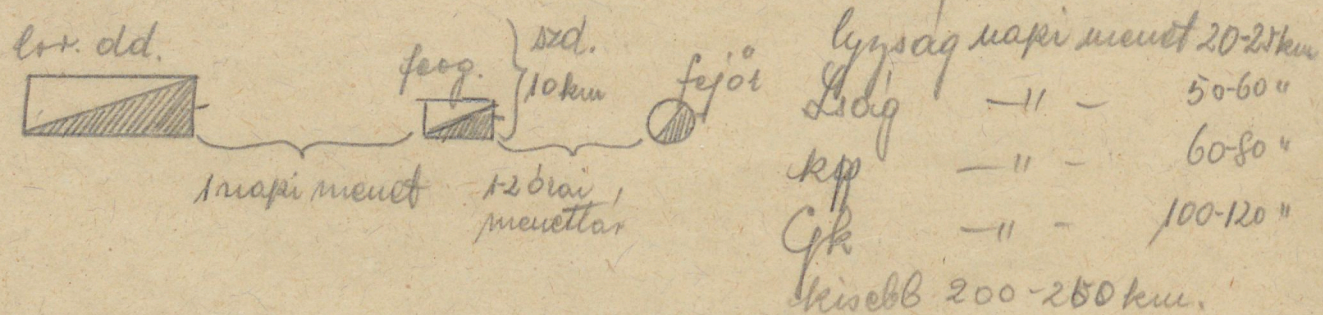 lov. dd.
foog.
szd.
10 km
fejőr
1 napi menet
1-2 órai
menettáv
lgyzság napi menet 20-25 km
Lság —"— 50-60 "
kp —"— 60-80 "
Gk —"— 100-120 "
kisebb 200-250 km.